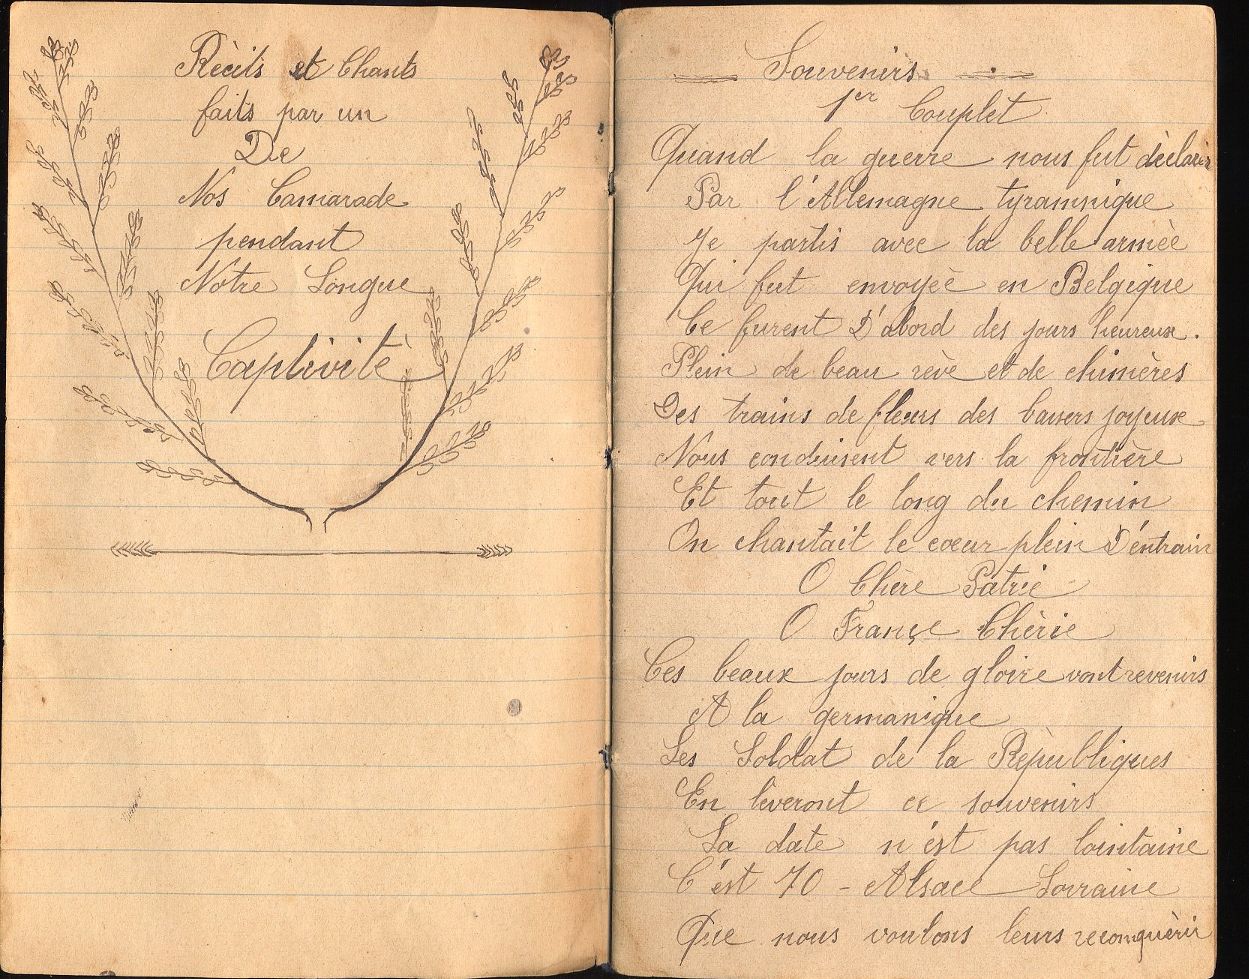 Rècits et Chants
faits par un
De
Nos Camarade
pendant
Notre Longue
Captivité
Souvenirs
1er Couplet
Quand la guerre nous fut dèclarer
Par l'Allemagne tyrannique
Je partis avec la belle armèe
Qui fut envoyèe en Belgique
Ce furent D'abord des jours heureux.
Plein de beau rève et de chimères
Des trains de fleurs des baisers joyeux
Nous conduisent vers la frontière
Et tout le long du chemin
On chantait le cœur plein D'éntrain
O Chère Patrie
O Françe Chèrie
Ces beaux jours de gloire vont revenirs
A la germanique
Les Soldat de la Rèpubliques
En lèveront ce souvenirs
La date n'est pas lointaine
C'est 70 - Alsace Lorraine
Que nous voulons leurs reconquèrir